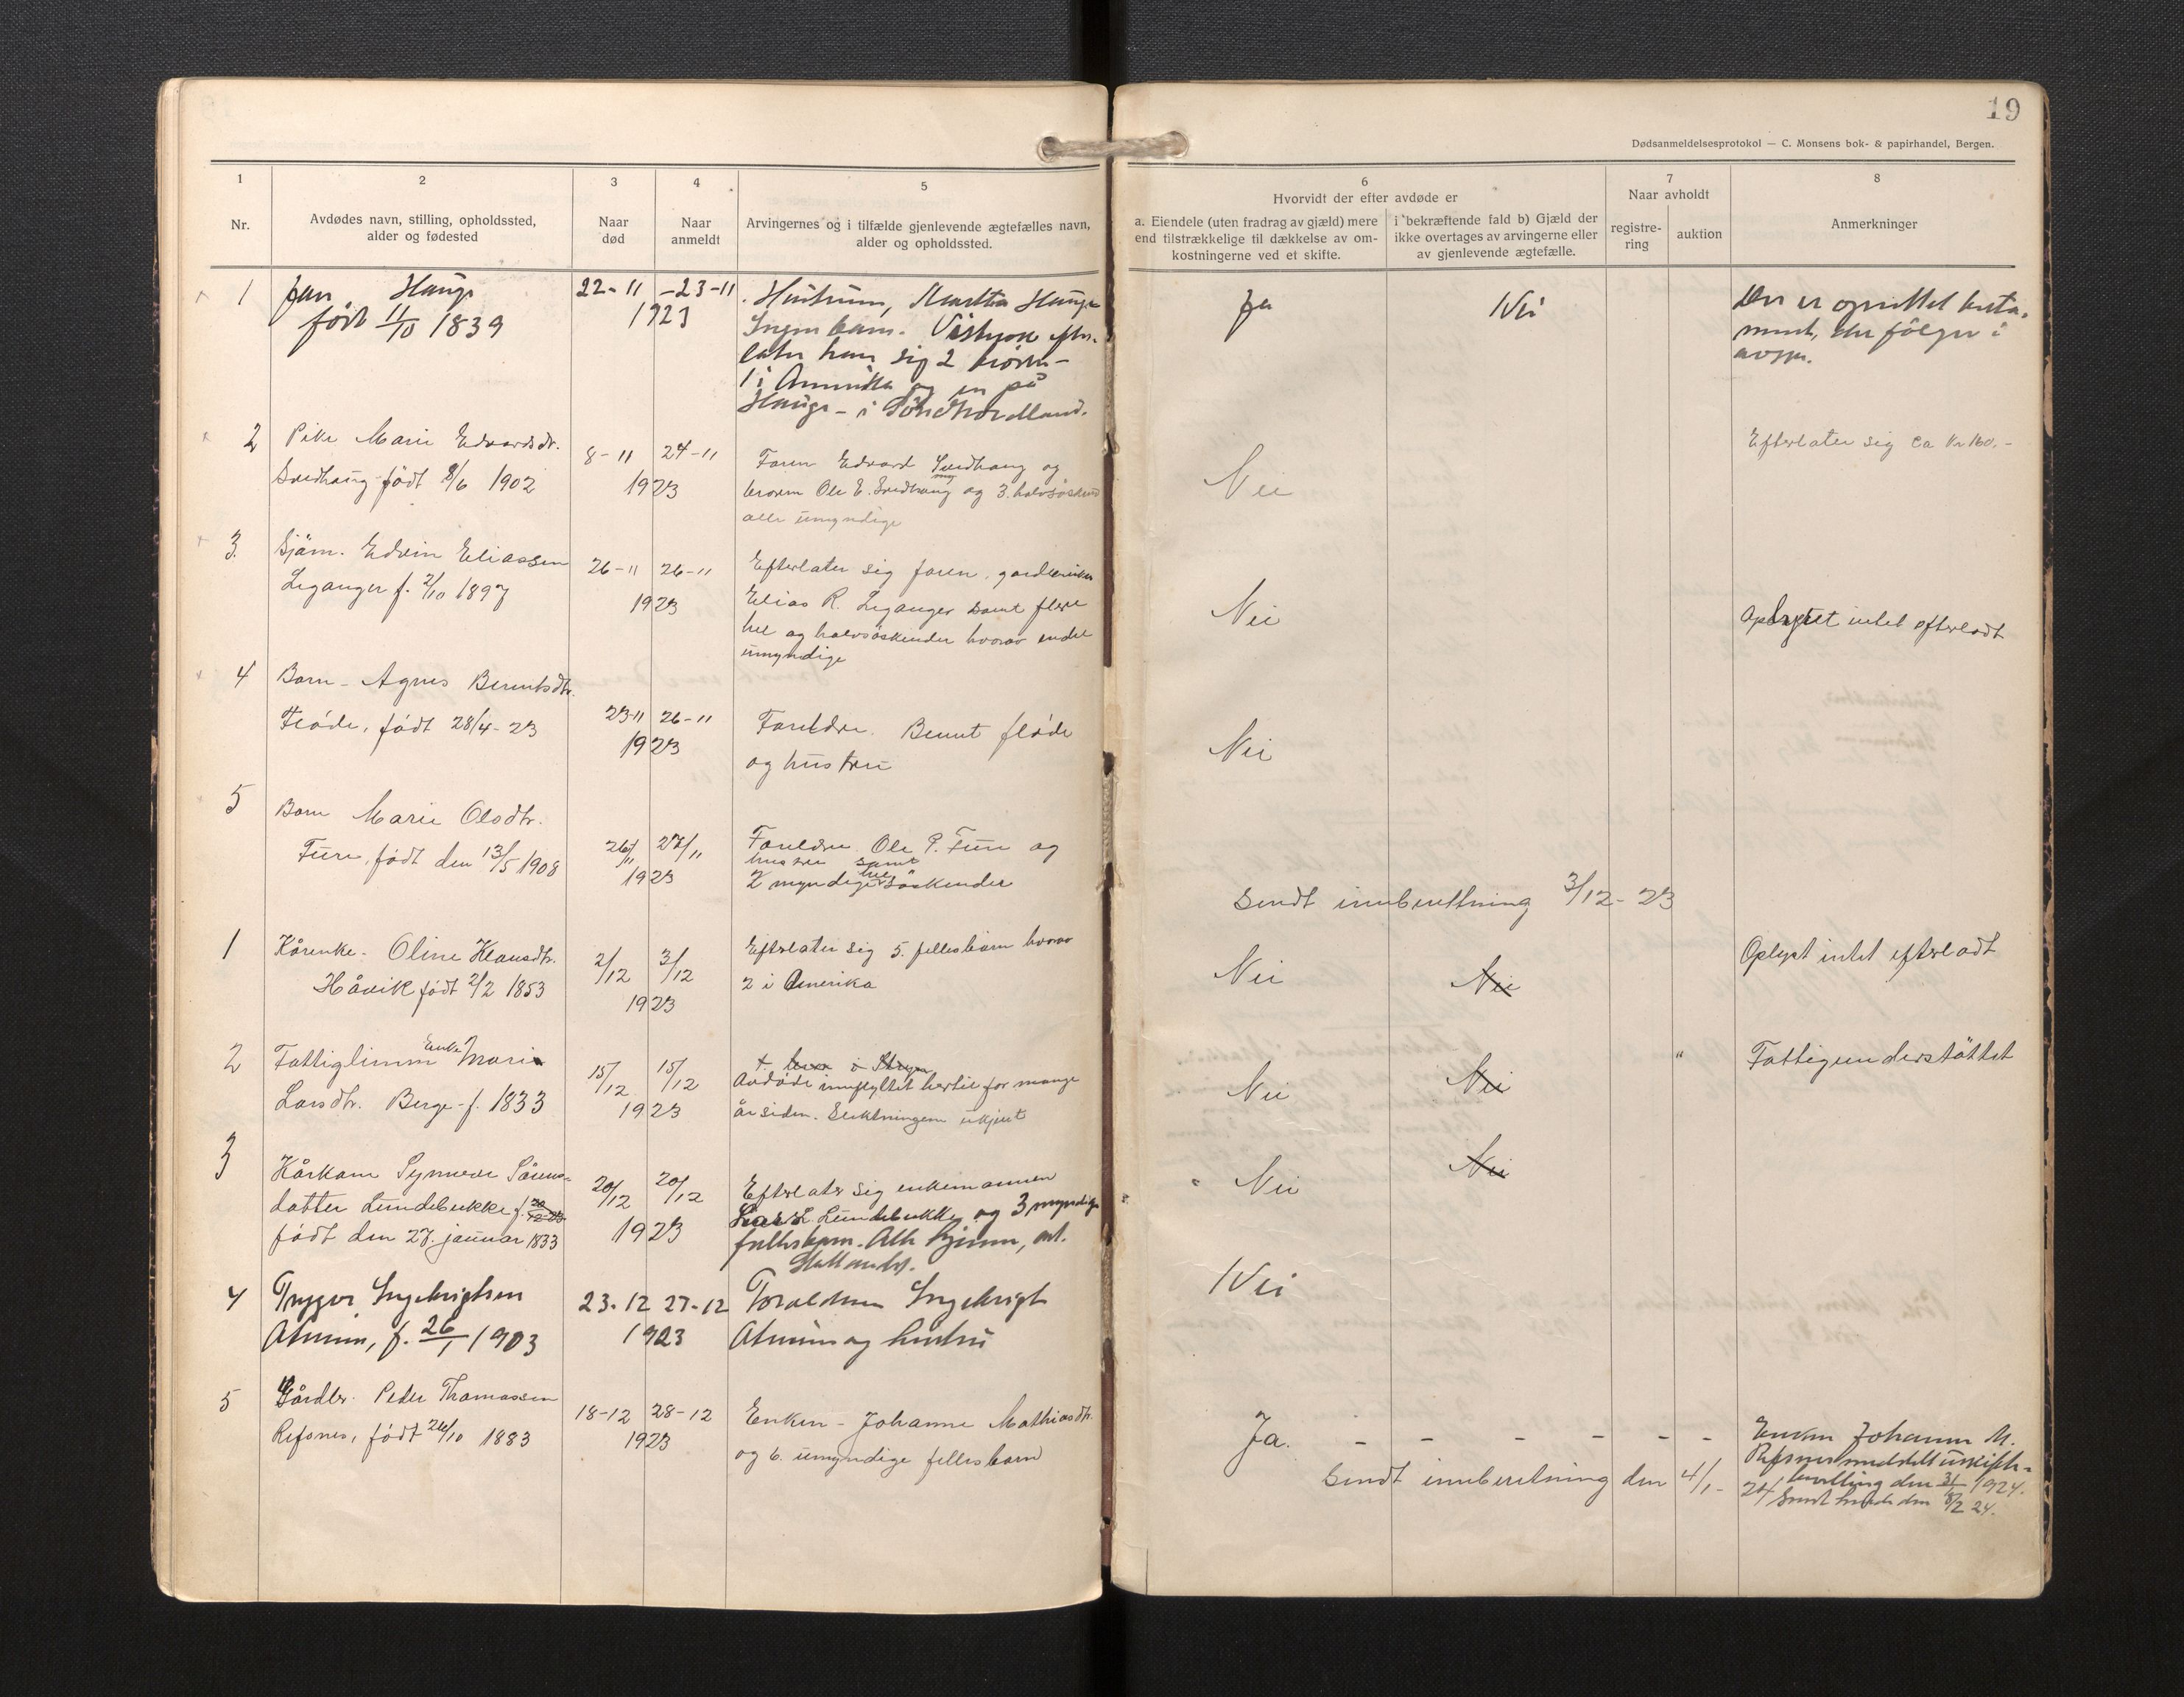 19
Dødsanmeldelsesprotokol — C. Monsens bok- & papirhandel, Bergen.
1
Nr.
2
Avdødes navn, stilling, opholdssted,
alder og fødested
3
Naar
død
4
Naar
anmeldt
5
Arvingernes og i tilfælde gjenlevende ægtefælles navn,
alder og opholdssted.
6
Hvorvidt der efter avdøde er
a. Eiendele (uten fradrag av gjæld) mere
end tilstrækkelige til dækkelse av om-
kostningerne ved et skifte.
i bekræftende fald b) Gjæld der
ikke overtages av arvingerne eller
av gjenlevende ægtefælle.
7
Naar avholdt
registre-
ring
auktion
8
Anmerkninger
1
Jan Hauge
født 11/10 1839
22-11
-23-11
1923
Hustruen, Martha Hauge
Ingen barn. Visstnok efter-
later han sig 2 brødre-
1 i Amerika og en på
Hauge - i Söndhordland.
Ja
Nei
Der er oprettet testa-
ment, der følger i
avskr.
2
Pike Marie Edvardsdtr.
Sredhaug født 8/6 1902
8-11
24-11
1923
Faren Edvard Sredhaug og
broren Ole E. Sredhaug og 3. halvsøskend
alle umyndige
Nei
Efterlater sig ca kr 160.-
3.
Sjöm. Edvin Eliassen
Leganger f. 2/10 1897
26-11
26-11
1923
Efterlater sig faren, gardbruker
Elias R. Leganger samt flere
hel og halvsöskender hvorav endel
umyndige
Nei
Oplyst intet efterladt
4
Barn - Agnes Berentsdtr.
Flöde, født 28/4-23
23-11
26-11
1923
Foreldre. Bernt flöde
og hustru
Nei
5
Barn Marie Olsdtr.
Fure, født den 13/5 1908
26/11
27/11
1923
Foreldre Ole P. Fure og
hustru samt
2 myndige hel söskender
Sendt innberettning 3/12-23
1
Kårenke - Oline Hansdtr.
Håvik født 2/2 1853
2/12
3/12
1923
Efterlater sig 5. fellesbarn hvorav
2 i Amerika
Nei
Nei
Oplyst intet efterladt
2
Fattiglemm Enke Marie
Larsdtr. Berge - f. 1833
15/12
15/12
1923
Avdøde innflyttet hertil for mange
år siden. Slektningene ukjent
Nei
Nei
"
Fattigunderstöttet
3
Kårkone Synneve Sörens-
datter Lundebukke f.
født den 27. januar 1833
20/12
20/12
1923
Efterlater sig enkemannen
Lars L. Lundebukke og 3 myndige
fellesbarn. Alle hjemme, ant.
Nei
Nei
4
Trygve Ingebrigtsen
Almenn, f. 26/1 1903
23-12
27-12
1923
Foreldrene Ingebrigt
Almenn og hustru
Nei
5
Gårdbr. Peder Thomassen
Refsnes, født 24/10 1883
18-12
28-12
1923
Enken - Johanne Mathiasdtr.
og 6. umyndige fellesbarn
Ja. - - - - - -
Sendt innberetning den 4/1-24
Enken Johanne M.
Refsnes meddelt uskifte-
bevilling den 31/1 1924.
Sendt hende den 8/2 24.